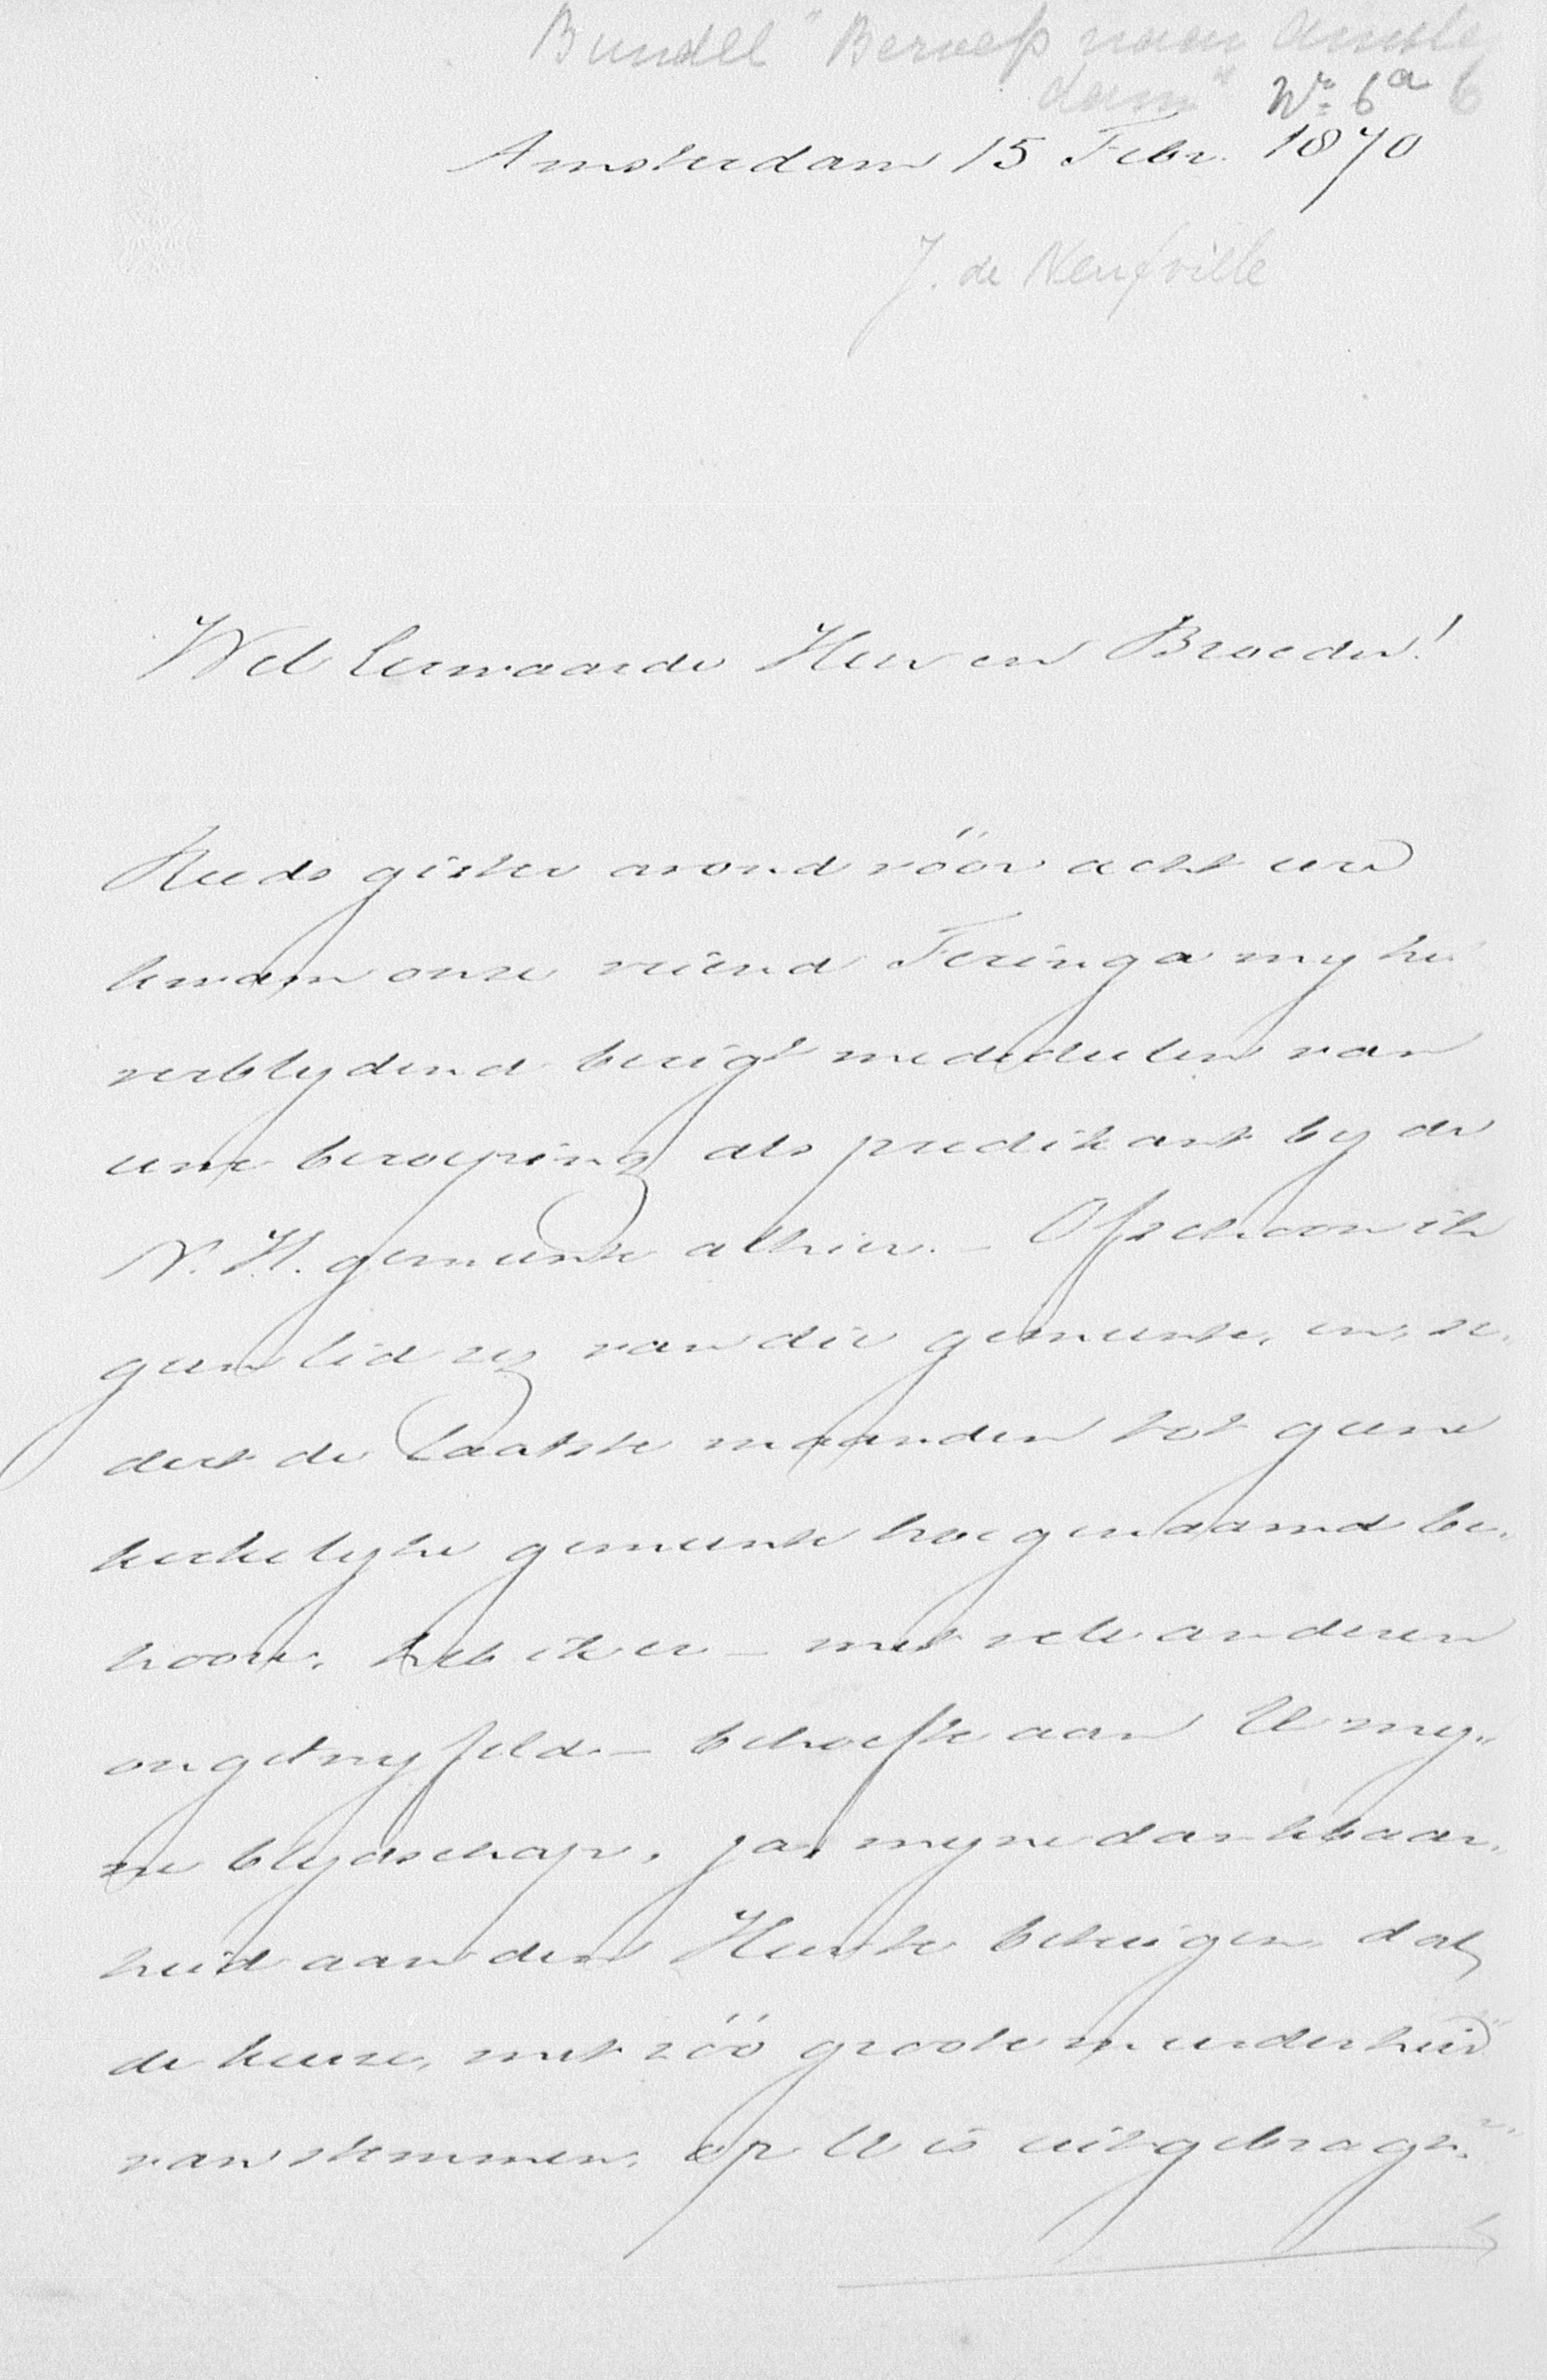 Bundel "Beroep naar Amster
dam" No. 6a 6
Amsterdam 15 Febr. 1870
J. de Neufville
Wel Eerwaarde Heer en Broeder!
Reeds gister avond vóór acht ure
kwam onze vriend Feringa my het
verblydend berigt mededeelen van
uwe beroeping als predikant by de
N. H. gemeente alhier. – Ofschoon ik
geen lid zij van die gemeente, en, se-
dert de laatste maanden tot geene
kerkelyke gemeente hoegenaamd be-
hoore, heb ik er – met vele anderen
ongetwyfeld – behoefte aan U my-
ne blydschap, ja, myne dankbaar-
heid aan den Heer te betuigen, dat
de keuze, met zóó groote meerderheid
van stemmen, op U is uitgebragt.